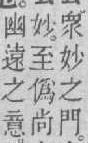 衆妙之門
妙至僞尚
幽遠之意